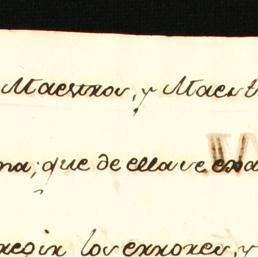 Maestros, y Maest
na; que de ella se exa
los errores, y